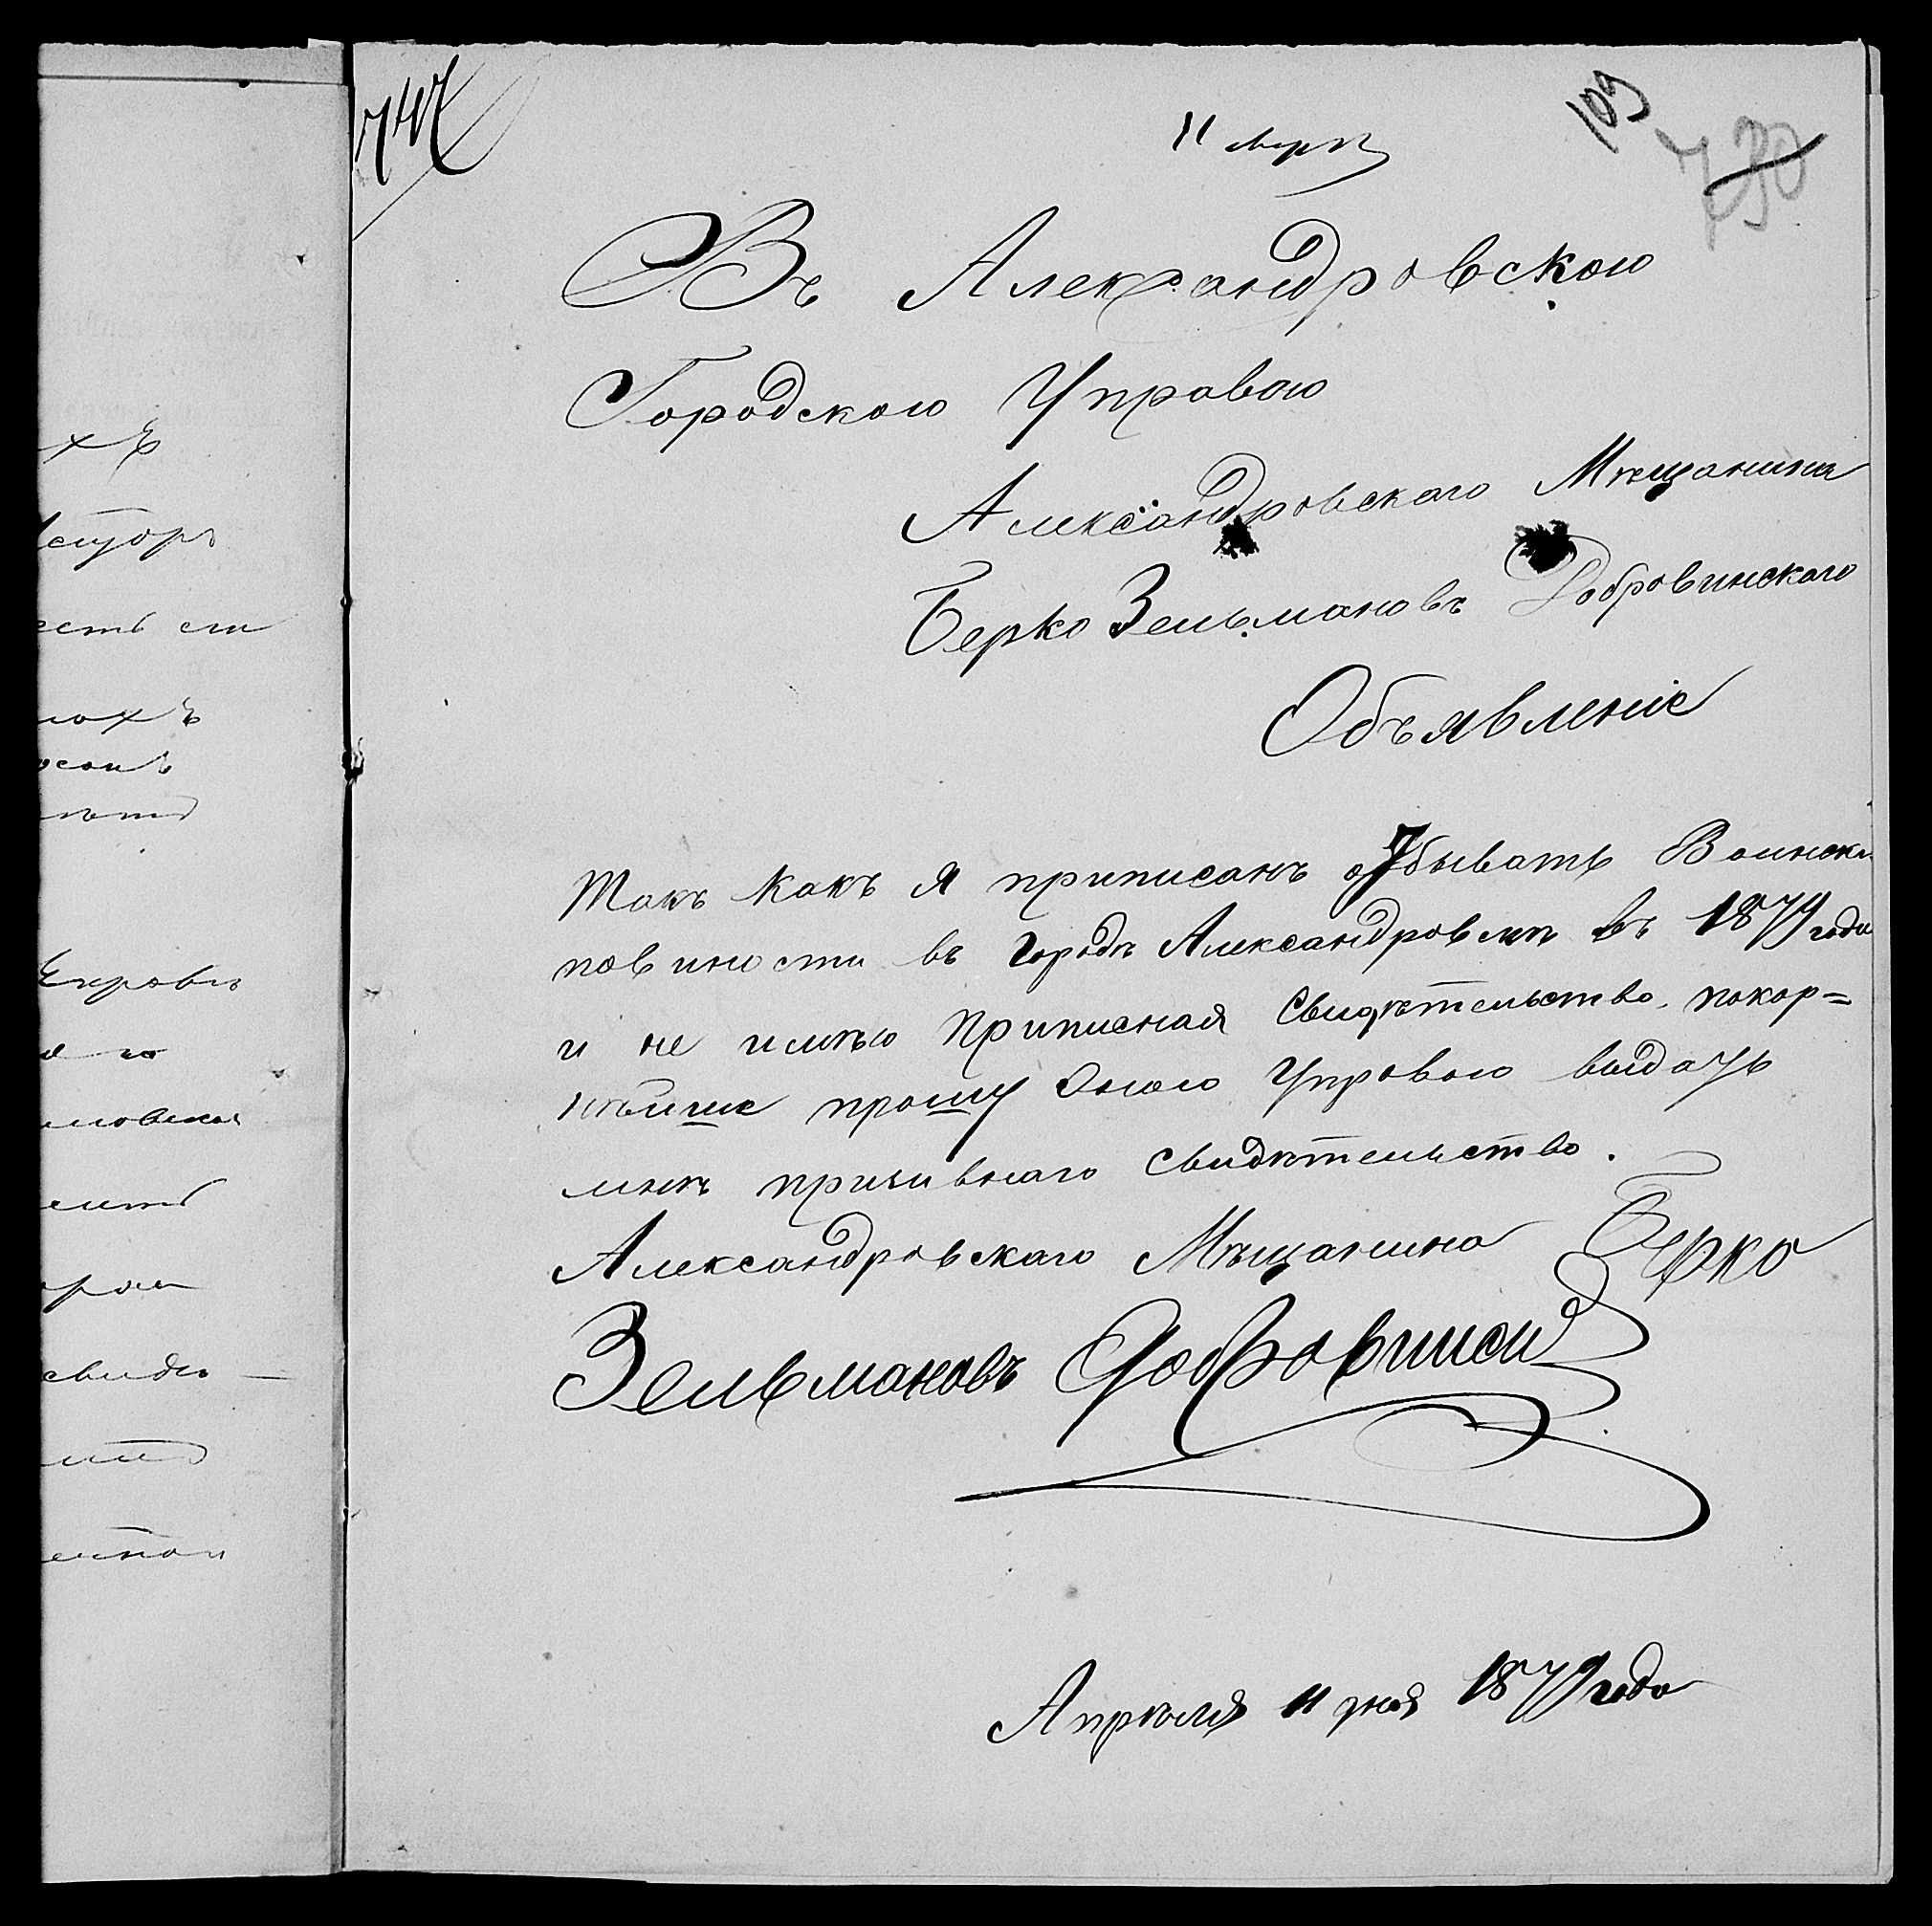 747
109
730
11 апр
Въ Александровскою
Городскою Управою
Александровскаго Мѣщанина
Берко Зельмановъ Добровинскаго
Объявленіе
Такъ какъ я приписанъ отбывать Воинск
повиности въ городѣ Александровскѣ въ 1879 года
и не имѣю приписная свидѣтельство покор=
нѣйше прошу Оною Управою выдать
мнѣ призивнаго свидѣтельство.
Александровскаго Мѣщанина Берко
Зельмановъ Добровинск
Апрѣля 11 дня 1879 года
хъ
есть
свидѣ